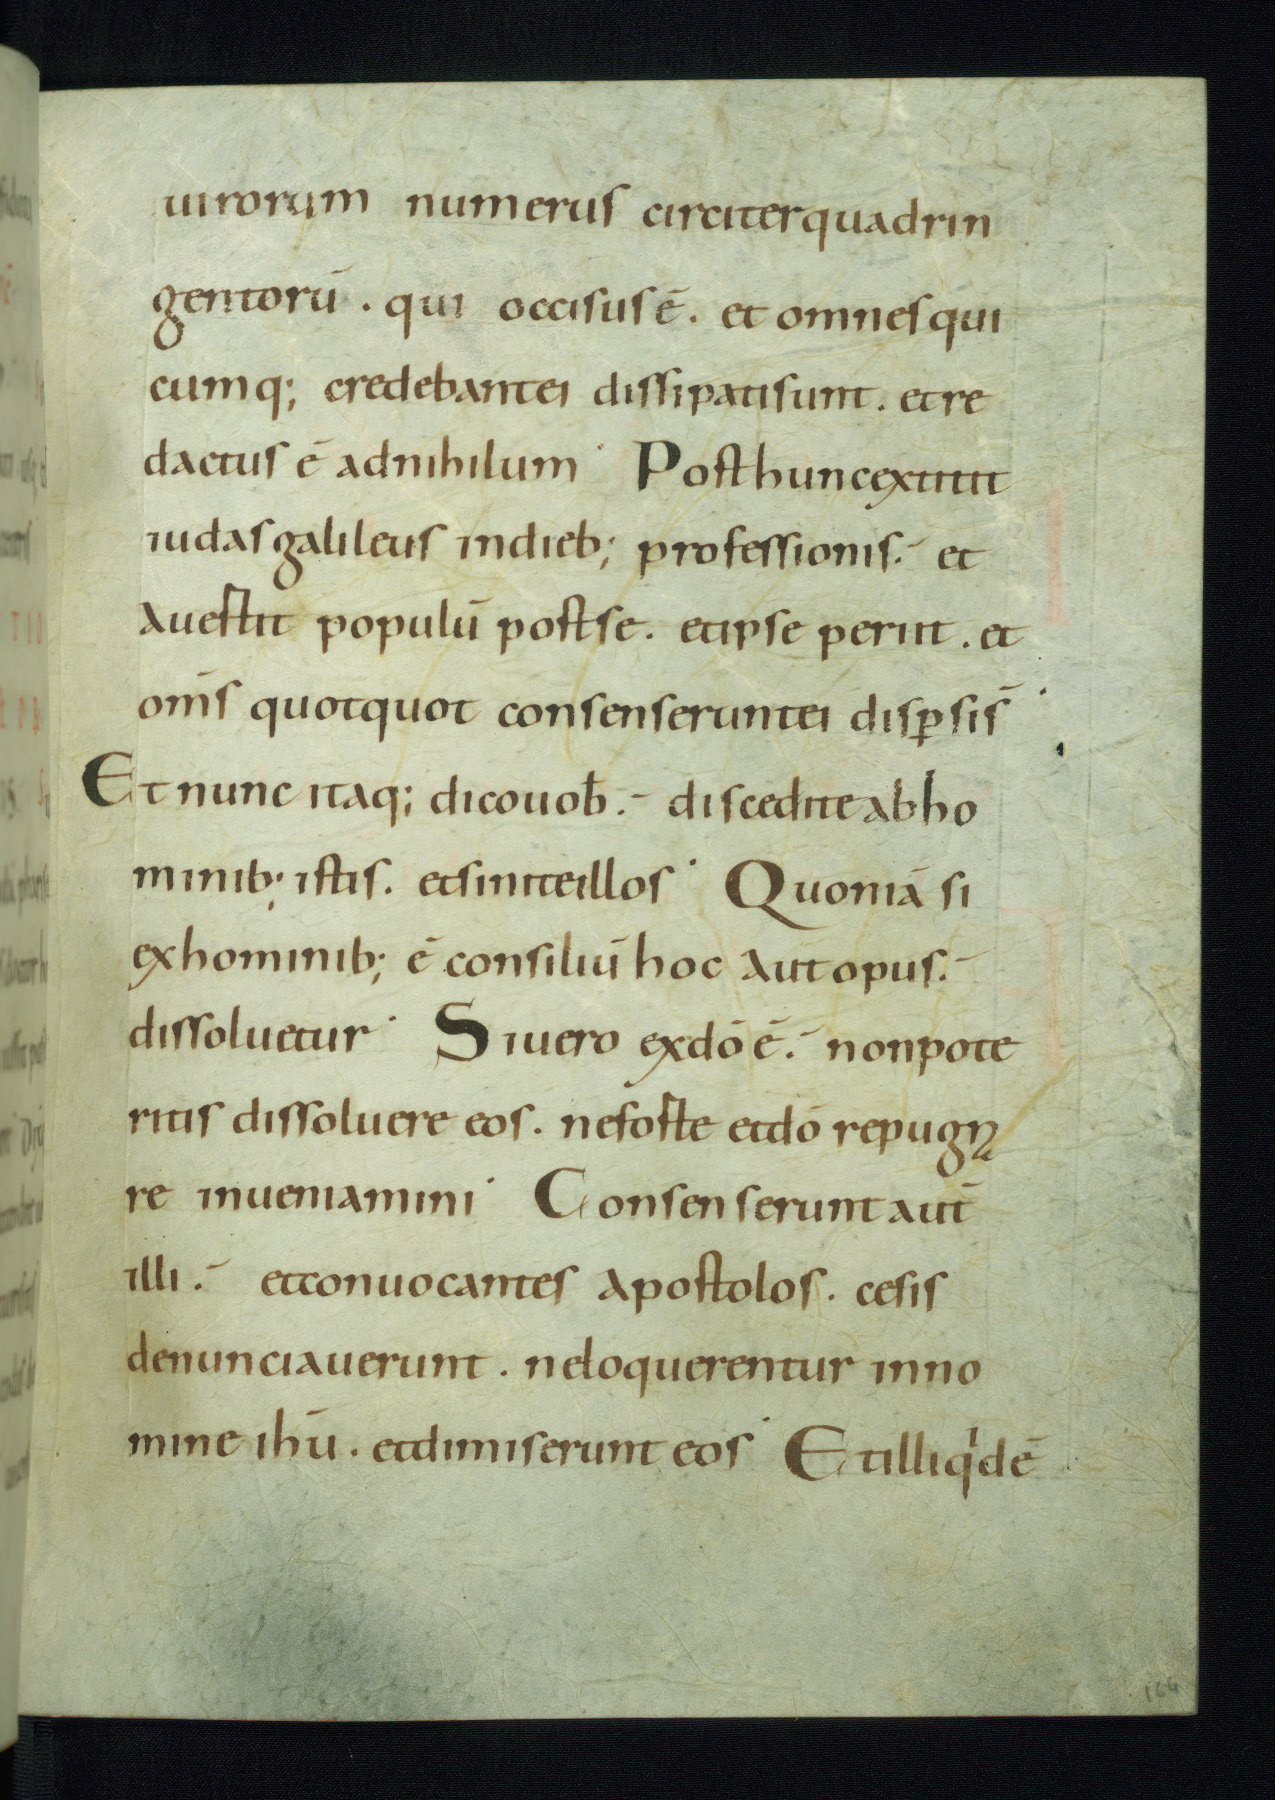 uirorum numerus circiterquadrin
gentorū . qui occisus ē . et omnes qui
cumq; credebantei dissipatisunt . etre
dactus ē adnihilum Posthuncextitit
iudasgalileus indieb; professionis. et
auertit populū postse . etipse periit . et
om̄s quotquot consenseruntei disꝑsis̄
Et nunc itaq; dicouob̄ . discedite abho
minib; istis . etsinite illos Quoniā si
exhominib; ē consiliū hoc aut opus.
dissoluetur Siuero exdō ē . nonpote
ritis dissoluere eos . neforte etdō repugna
re inueniamini Consenserunt aut̄
illi . etconuocantes apostolos . cesis
denunciauerunt . neloquerentur inno
mine ihū . etdimiserunt eos Et illiqͥdē
166